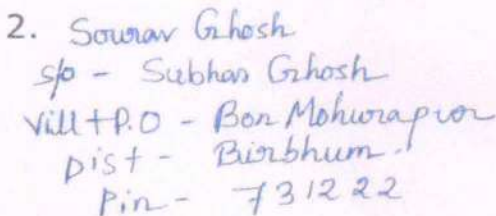 2. Sourav Ghosh
S/o - Subhas Ghosh
Vill+P.O - Bon Mohurapur
Dist - Birbhum.
Pin - 731222